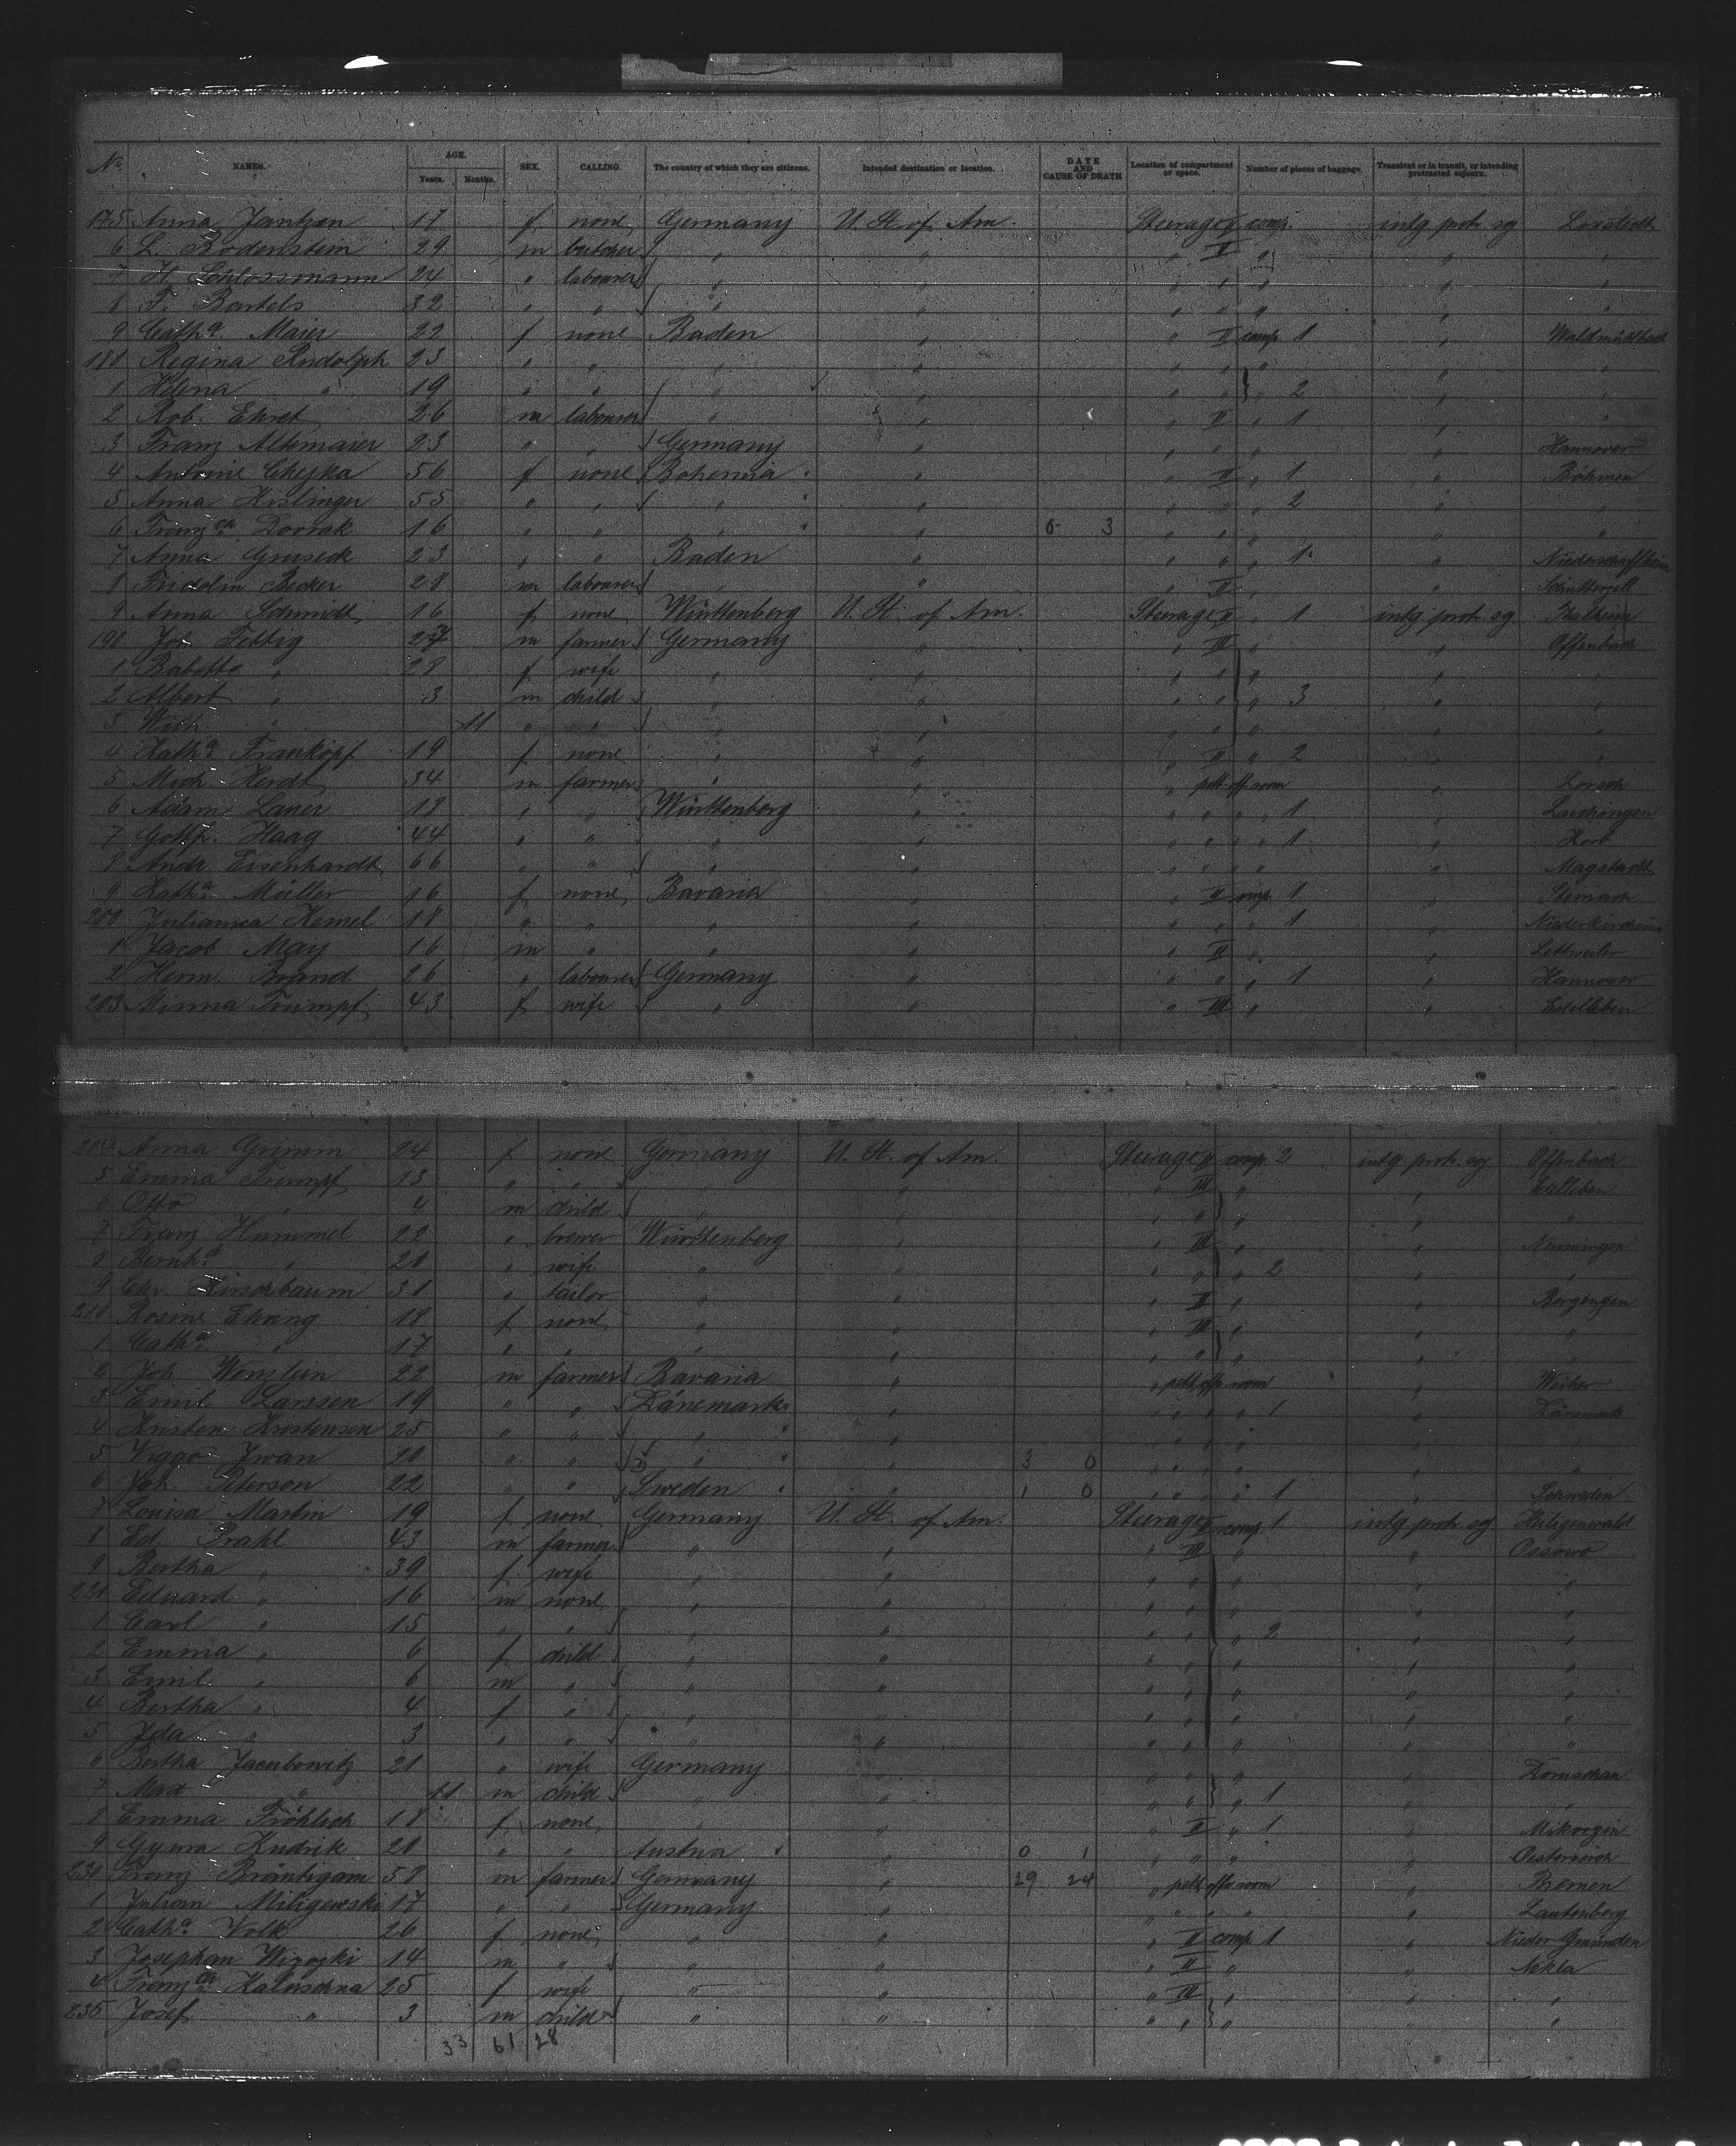 No. NAMES. AGE. Years. Months. SEX. CALLING. The country of which they are citizens. Intended destination or location. DATE AND CAUSE OF DEATH Location of compartment or space. Number of pieces of baggage. Transient or in transit, or intending protracted sojourn.
175 Anna Jantzen 17 f none Germany U. St. of Am. Steerage II comp. intg prot. sg Loxstedt
6 L. Bodenstein 29 m butcher " " " II " " "
7 H. Schlossmann 24 " labourer " " " " " " "
8 F. Bartels 32 " " " " " " " " "
9 Cath.a Maier 22 f none Baden " " II comp 1 " Waldmühlbach
180 Regina Rudolph 23 " " " " " " " " "
1 Helena " 19 " " " " " " " 2 " "
2 Rob. Ehret 26 m labourer " " " II " 1 " "
3 Franz Altemaier 23 " " Germany " " " " " Hannover
4 Antonie Chejka 56 f none Bohemia " " II " 1 " Böhmen
5 Anna Hislinger 55 " " " " " " " 2 " "
6 Franz.ca Dorrak 16 " " " " 0 3 " " " " "
7 Anna Gruseck 23 " " Baden " " " " 1 "
8 Fridolin Becker 28 m labourer " " " II " "
9 Anna Schmidt 16 f none Württenberg U. St. of Am. Steerage II " 1 intg. prot. sg Thalheim
190 Joh. Fettig 27 m farmer Germany " " III " " Offenbach
1 Babette " 28 f wife " " " " " " "
2 Albert " 3 m child " " " " " 3 " "
3 " 11 " " " " " " " " "
4 Kath.a Frankopf 19 f none " " " II " 2 " "
5 Mich. Herdt 34 m farmer " " " pett. off room " Lorsch
6 Adam Lauer 18 " " Württenberg " " " " " 1 " Laichingen
7 Gottf. Haag 44 " " " " " " " " 1 " Korb
8 Andr Eisenhardt 66 " " " " " " " " " Magstadt
9 Kath.a Müller 16 f none Bavaria " " II comp 1 "
200 Julianna Kemel 18 " " " " " " " 1 " Niederkirchein
1 Jacob May 16 m " " " " II " " Lettweiler
2 Herm. Brand 26 " labourer Germany " " " " 1 " Hannover
203 Minna Trumpf 43 f wife " " " III " " Edelleben
204 Anna Grimm 24 f none Germany U. St. of Am. Steerage II comp. 2 intg. prot. sg Offenbach
5 Emma Trumpf 13 " " " " " III " " Edelleben
6 Otto " 4 m child " " " " " " "
7 Franz Hummel 22 " brewer Württenberg " " III " " Nenningen
8 Bernh.d " 20 " wife " " " " " 2 " "
9 Chr. Kirschbaum 31 " tailor " " " II " "
210 Rosine Ehing 18 f none " " " III " " "
1 Cath.a " 17 " " " " " " " " "
2 Joh. Wenzlein 22 m farmer Bavaria " " pett. offr room " Weiher
3 Emil Larssen 19 " " Dänemark " " " " " 1 " Dänemark
4 Kristen Kristensen 25 " " " " " " " " " "
5 Viggo Iwan 20 " " " " 3 0 " " " " " "
6 Joh. Peterson 22 " " Sweden " 1 0 " " " " 1 " Schweden
7 Louisa Martin 19 f none Germany U. St. of Am. Steerage II comp. 1 intg prot. sg Heiligenwald
8 Ed. Prahl 43 m farmer " " " III " " Ossowo
9 Bertha " 39 f wife " " " " " " "
220 Eduard " 16 m none " " " " " " "
1 Carl " 15 " " " " " " " 2 " "
2 Emma " 6 f child " " " " " " "
3 Emil " 6 m " " " " " " " "
4 Bertha " 4 f " " " " " " " "
5 Ida " 3 " " " " " " " " "
6 Bertha Jacubowitz 21 " wife Germany " " " " "
7 Max " 11 m child " " " " " 1 " "
8 Emma Fröhlich 18 f none " " " II " 1 "
9 Hudrik 20 " " Austria " 0 1 " " " " Oesterreich
230 Franz Bräutigam 58 m farmer Germany " 29 24 " pett offr room " Bremen
1 Julian Miligewski 17 " " Germany " " " " " " Lautenberg
2 Cath.a Volk 26 f none " " " II comp. 1 " Nieder Gmünden
3 Josephan 14 m " " " " II " " Nekla
4 Franz.ca Kaluschna 25 f wife " " " III " " "
235 Josef " 3 m child " " " " " " "
33 61 28